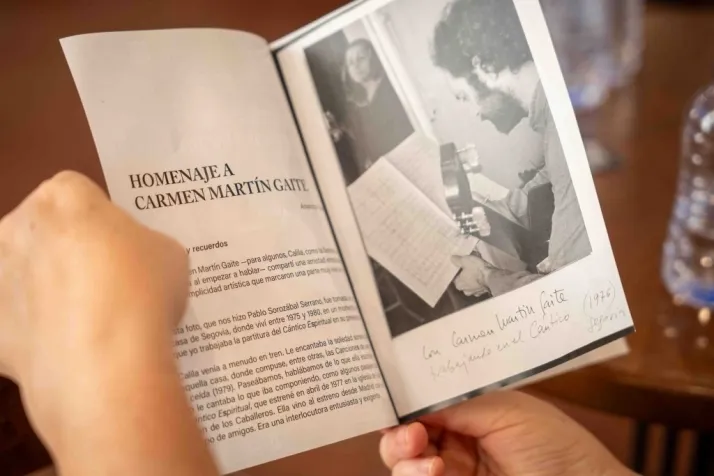 HOMENAJE A
CARMEN MARTÍN GAITE
y recuerdos
en Martín Gaite —para algunos, Calila, como
al empezar a hablar— compartí una
mplicidad artística que marcaron una parte
foto, que nos hizo Pablo Sorozábal Serrano, fue
asa de Segovia, donde viví entre 1975 y 1980, en un
que yo trabajaba la partitura del Cántico Espiritual en su
Calila venía a menudo en tren. Le encantaba la soledad
quella casa, donde compuse, entre otras, las Canciones
ceída (1979). Paseábamos, hablábamos de lo que
le cantaba lo que iba componiendo, como algunos
ntico Espiritual, que estrené en abril de 1977 en la iglesia
n de los Caballeros. Ella vino al estreno desde Madrid
po de amigos. Era una interlocutora entusiasta y exigen
Con Carmen Martín Gaite (1976)
trabajando en el Cántico Segovia